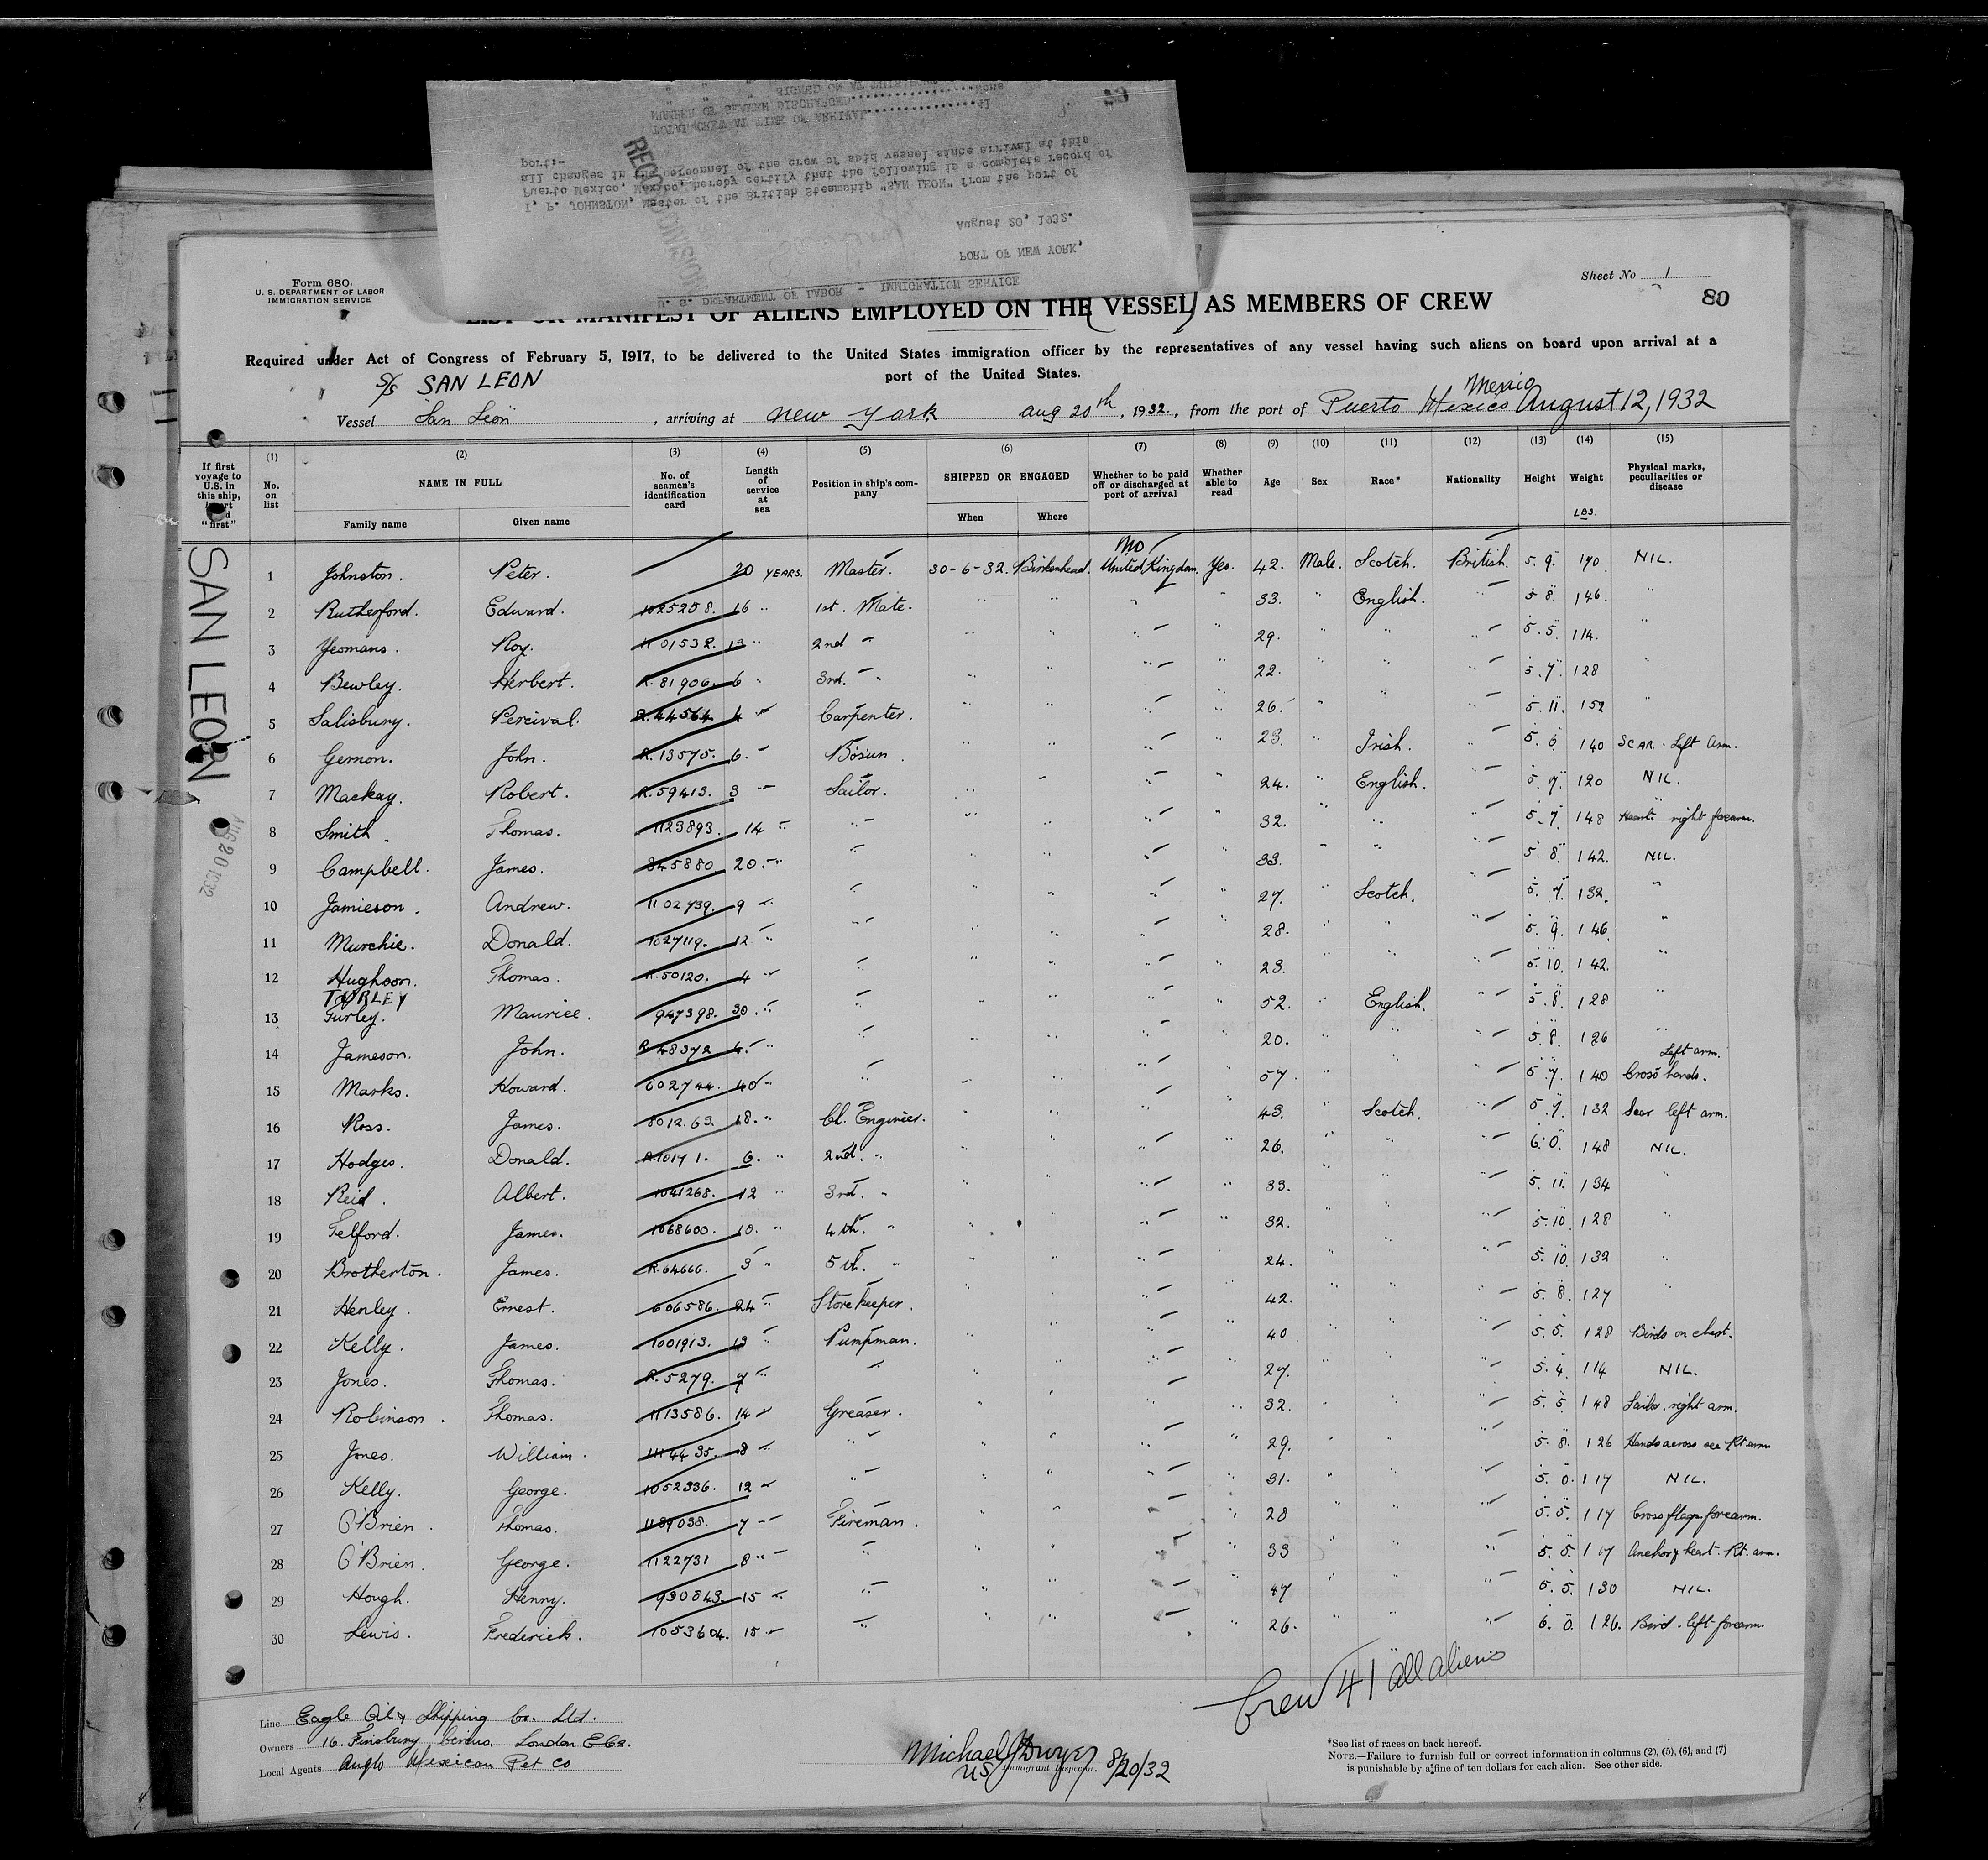 " " " SIGNED ON AT THIS PORT
NUMBER OF SEAMEN DISCHARGED................None
TOTAL CREW AT TIME OF ARRIVAL................41
port:-
all changes in the personnel of the crew of said vessel since arrival at this
Puerto Mexico, Mexico, hereby certify that the following is a complete record of
I, P. JOHNSTON, Master of the British Steamship "SAN LEON" from the port of
August 20, 1932.
PORT OF NEW YORK,
U. S. DEPARTMENT OF LABOR - IMMIGRATION SERVICE
Form 680.
U. S. DEPARTMENT OF LABOR
IMMIGRATION SERVICE
Sheet No 1
80
LIST OR MANIFEST OF ALIENS EMPLOYED ON THE VESSEL AS MEMBERS OF CREW
Required under Act of Congress of February 5, 1917, to be delivered to the United States immigration officer by the representatives of any vessel having such aliens on board upon arrival at a
port of the United States.
S/S SAN LEON
Vessel San Leon, arriving at New York Aug 20th, 1932, from the port of Puerto Mexico Mexico August 12, 1932
If first voyage to U.S. in this ship, insert word "first"
(1) No. on list
(2) NAME IN FULL Family name Given name
(3) No. of seamen's identification card
(4) Length of service at sea
(5) Position in ship's company
(6) SHIPPED OR ENGAGED When Where
(7) Whether to be paid off or discharged at port of arrival
(8) Whether able to read
(9) Age
(10) Sex
(11) Race*
(12) Nationality
(13) Height
(14) Weight LBS.
(15) Physical marks, peculiarities or disease
SAN LEON
AUG 20 1932
1 Johnston. Peter. 20 YEARS. Master. 30-6-32. Birkenhead. no United Kingdom. Yes. 42. Male. Scotch. British. 5. 9. 170. NIL.
2 Rutherford. Edward. 1025258. 16 " 1st. Mate. " " " " 33. " English. " 5 8. 146. "
3 Yeomans. Roy. R 01532. 13 " 2nd " " " " " 29. " " " 5. 5. 114. "
4 Bewley. Herbert. R. 81906. 6 " 3rd. " " " " " 22. " " " 5. 7. 128 "
5 Salisbury. Percival. R. 44564. 4 " Carpenter. " " " " 26. " " " 5. 11. 152 "
6 Gernon. John. R. 13575. 6. " Bosun. " " " " 23. " Irish. " 5. 6. 140 SCAR. Left Arm.
7 Mackay. Robert. R. 59413. 3 " Sailor. " " " " 24. " English. " 5. 7. 120 NIL.
8 Smith. Thomas. 1123893. 14 " " " " " " 32. " " " 5. 7. 148 Heart. right forearm.
9 Campbell. James. 845880. 20. " " " " " " 33. " " " 5 8. 142. NIL.
10 Jamieson. Andrew. 1102739. 9 " " " " " " 27. " Scotch. " 5. 7. 132. "
11 Murchie. Donald. 1027119. 12 " " " " " " 28. " " " 5. 9. 146. "
12 Hughson. Thomas. R. 50120. 4 " " " " " " 23. " " " 5. 10. 142. "
TURLEY
13 Turley. Maurice. 947398. 30. " " " " " " 52. " English. " 5. 8. 128 "
14 Jameson. John. R 48372 4. " " " " " " 20. " " " 5. 8. 126 "
15 Marks. Howard. 602744. 40 " " " " " " 57. " " " 5 7. 140 Left arm. Cross hands.
16 Ross. James. 801263. 18. " Ch. Engineer. " " " " 43. " Scotch. " 5 7. 132 Scar left arm.
17 Hodges. Donald. R. 10171. 6. " 2nd. " " " " " 26. " " " 6. 0. 148 NIL.
18 Reid. Albert. 1041268. 12 " 3rd. " " " " " 33. " " " 5. 11. 134 "
19 Telford. James. 1068600. 10. " 4th. " " " " " 32. " " " 5. 10. 128 "
20 Brotherton. James. R. 64666. 3 " 5th. " " " " " 24. " " " 5. 10. 132 "
21 Henley. Ernest. 606586. 24 " Storekeeper. " " " " 42. " " " 5. 8. 127 "
22 Kelly. James. 1001913. 13 " Pumpman. " " " " 40 " " " 5. 5. 128 Birds on chest.
23 Jones. Thomas. R. 5279. 7 " " " " " " 27. " " " 5. 4. 114 NIL.
24 Robinson. Thomas. 1113586. 14 " Greaser. " " " " 32. " " " 5. 5. 148 Sailor. right arm.
25 Jones. William. 1114435. 8 " " " " " " 29. " " " 5. 8. 126 Hands across sea Rt arm
26 Kelly. George. 1052336. 12 " " " " " " 31. " " " 5. 0. 117 NIL.
27 O'Brien. Thomas. 1189038. 7 " Fireman. " " " " 28 " " " 5. 5. 117 Cross flags. forearm.
28 O'Brien. George. 1122731 8 " " " " " " 33 " " " 5. 5. 117 Anchor & heart. Rt. arm.
29 Hough. Henny. 930843. 15 " " " " " " 47 " " " 5. 5. 130 NIL.
30 Lewis. Frederick. 1053604. 15 " " " " " " 26. " " " 6. 0. 126. Bird. left forearm
Crew 41 all aliens
Line Eagle Oil & Shipping Co. Ltd.
Owners 16. Finsbury Circus. London EC2.
Local Agents Anglo Mexican Pet Co
Michael J Dwyer 8/20/32
US Immigrant Inspector.
*See list of races on back hereof.
NOTE.—Failure to furnish full or correct information in columns (2), (5), (6), and (7)
is punishable by a fine of ten dollars for each alien. See other side.